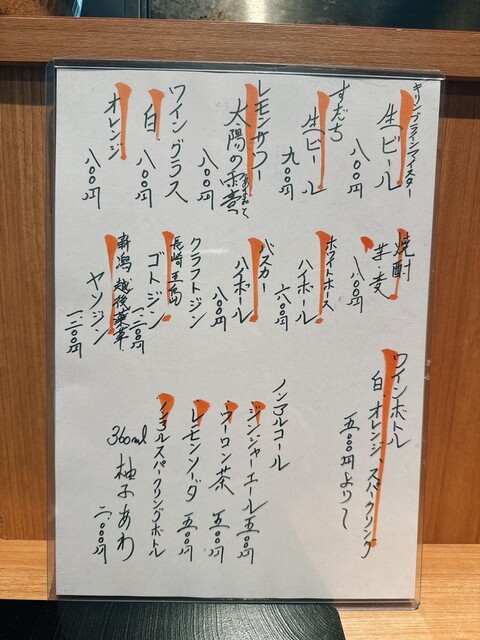 キリンブラウマイスター
生ビール
八〇〇円
すだち
生ビール
九〇〇円
レモンサワー
太陽の
八〇〇円
ワイングラス
白
八〇〇円
オレンジ
八〇〇円
焼酎
芋・麦
八〇〇円
ホワイトホース
ハイボール
六〇〇円
バスカー
ハイボール
八〇〇円
クラフトジン
長崎 五島
ゴトジン
一二〇〇円
新潟 越後薬草
ヤソジン
一二〇〇円
ワインボトル
白、オレンジ、スパークリング
五〇〇〇円より〜
ノンアルコール
ジンジャーエール 五〇〇円
ウーロン茶 五〇〇円
レモンソーダ 五〇〇円
ノンアルスパークリングボトル
360ml 柚子あわ
二、〇〇〇円